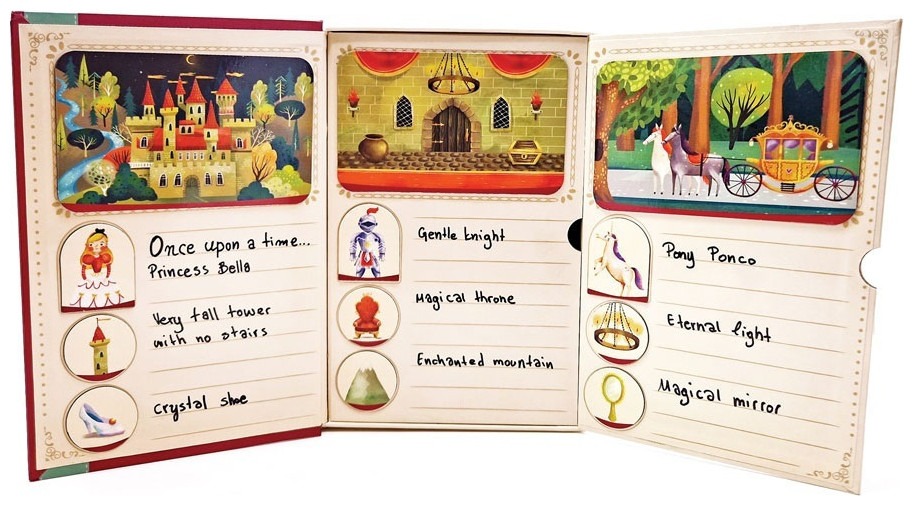 Once upon a time...
Princess Bella
Very tall tower
with no stairs
crystal shoe
Gentle knight
Magical throne
Enchanted mountain
Pony Ponco
Eternal light
Magical mirror